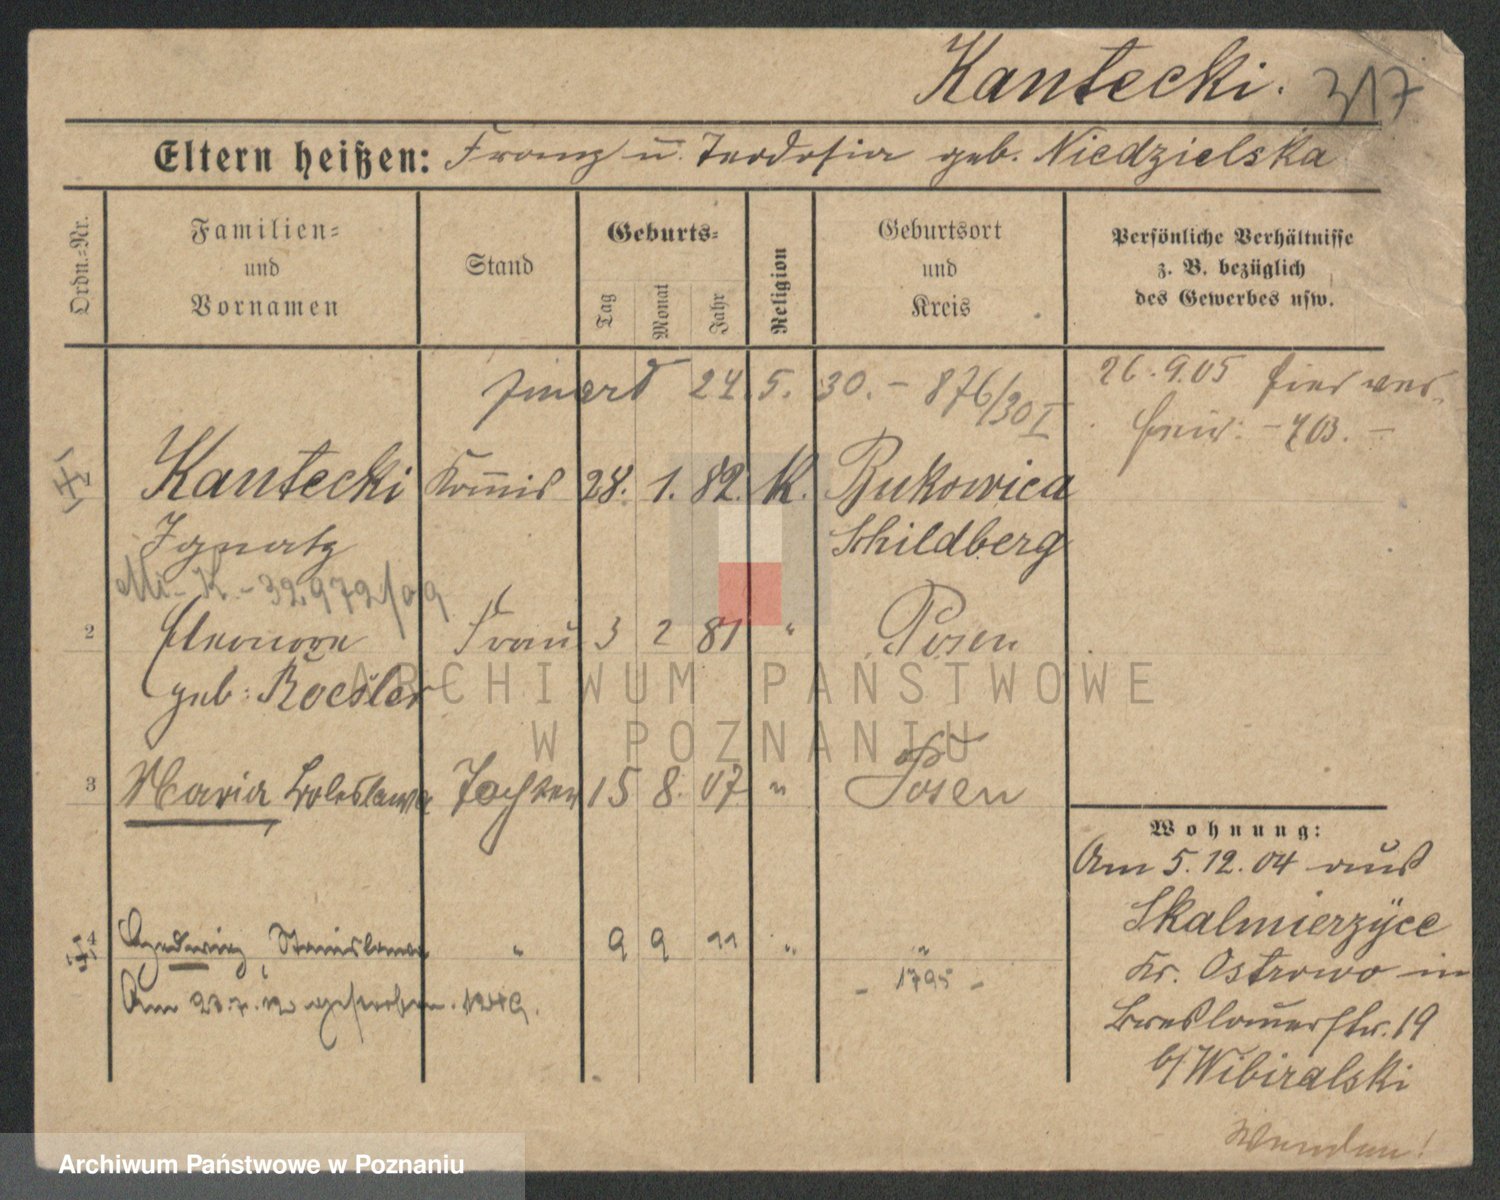 Kantecki. 317
Eltern heißen: Franz u. Teodosia geb. Niedzielska
Ordn.-Nr.
Familien-
und
Vornamen
Stand
Geburts-
Tag
Monat
Jahr
Religion
Geburtsort
und
Kreis
Persönliche Verhältnisse
z. B. bezüglich
des Gewerbes usw.
24. 5. 30. – 876/30 I
26. 9. 05 hier
– 703. –
Kantecki Kommis 28. 1. 82. K. Bukowica
Ignatz Schildberg
Mi - K. - 32972/09
2 Eleonore Frau 3 2 81 " Posen
geb: Roesler
3 Maria Boleslawa Tochter 15 8. 07 " Posen
4 Hedwig Stanislawa " 9 9 11 " "
– 1795 –
Am 23. 7. 12 gestorben. 1249.
Wohnung:
Am 5. 12. 04 aus
Skalmierzÿce
Kr. Ostrowo in
Breslauerstr. 19
b/ Wibiralski
Wenden!
ARCHIWUM PAŃSTWOWE
W POZNANIU
Archiwum Państwowe w Poznaniu